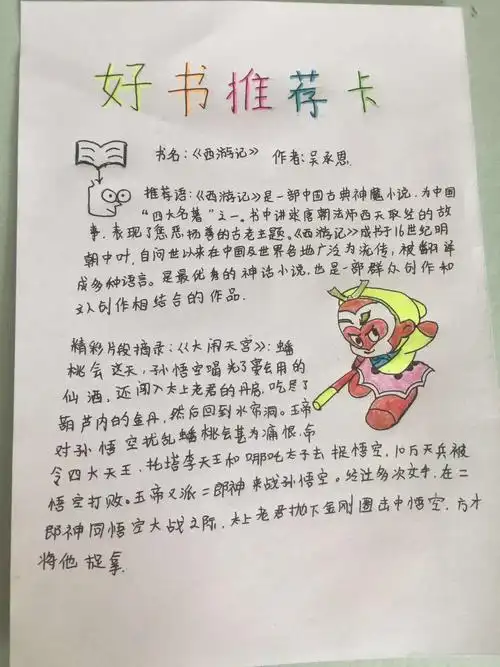 好书推荐卡
书名：《西游记》 作者：吴承恩.
推荐语：《西游记》是一部中国古典神魔小说，为中国
“四大名著”之一。书中讲述唐朝法师西天取经的故
事，表现了惩恶扬善的古老主题。《西游记》成书于16世纪明
朝中叶，自问世以来在中国及世界各地广泛为流传，被翻译
成多种语言。是最优秀的神话小说，也是一部群众创作和
文人创作相结合的作品.
精彩片段摘录：《大闹天宫》：蟠
桃会这天，孙悟空喝光了宴会用的
仙酒，还闯入太上老君的丹房，吃尽了
葫芦内的金丹，然后回到水帘洞。玉帝
对孙悟空扰乱蟠桃会甚为痛恨，命
令四大天王、托塔李天王和哪吒太子去捉悟空，10万天兵被
悟空打败。玉帝又派二郎神来战孙悟空。经过多次交手，在二
郎神同悟空大战之际，太上老君抛下金刚圈击中悟空，方才
将他捉拿.